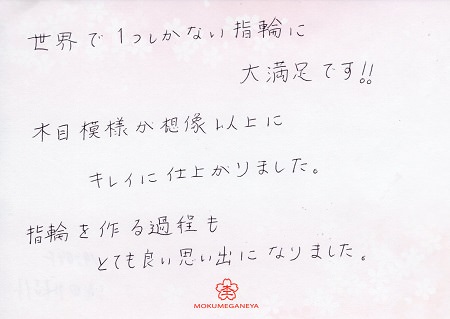 世界で1つしかない指輪に
大満足です!!
木目模様が想像以上に
キレイに仕上がりました。
指輪を作る過程も
とても良い思い出になりました。
MOKUMEGANEYA